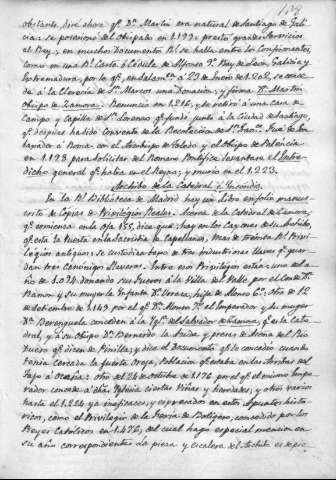 obstante, diré ahora qᵉ. Dⁿ. Martin era natural de Santiago de Gali-
cia: se posesionó del Obispado en 1.193: prestó grandes Servicios
al Rey, en muchos Documentos Rˢ. se halla entre los Confirmantes,
como en una Rˡ. Carta ó Cédula de Alfonso 9º. Rey de Leon, Galicia y
Extremadura, por la qᵉ. en Salamᶜᵃ. á 29 de Enero de 1.202, se conce-
de á la Clerecia de Sⁿ. Marcos una Donacion, y firma Dⁿ. Martin
Obispo de Zamora: Renunció en 1.216, y se retiró á una casa de
Campo y capilla de Sⁿ. Lorenzo qᵉ. fundó junto á la Ciudad de Santiago
qᵉ. despues ha sido Convento de la Recoleccion de Sⁿ. Franᶜᵒ. Fue Emba-
jador á Roma con el Arzobispo de Toledo y el Obispo de Palencia
en 1.193 para solicitar del Romano Pontifice levantase el Entre-
dicho general qᵉ. habia en el Reyno; y murió en el 1.223.
Archivo de la Catedral é Incendio
En la Rˡ. Biblioteca de Madrid hay un libro en folio manus-
crito de Copias de Privilegios Reales. Acerca de la Catedral de Zamora,
qᵉ. comienza en la oja 155, dice que hay en los Cajones de su Archivo,
qᵉ. está la Puerta en la Sacristia de Capellanes, mas de treinta Rˢ. Privi-
legios antiguos: Se custodian bajo de tres industriosas llaves qᵉ. guar-
dan tres Canonigos Llaveros. Entre esos Privilegios está uno del a-
ño de 1.094 donando sus Fueros á la Villa del Valle por el Conde Dⁿ.
Ramon y su muger la Infanta Dª. Urraca, hija de Alonso 6º: Otro de 12
de Setiembre de 1.143 por el qᵉ. Dⁿ. Alonso 7º. el Emperador y Su muger
Dª. Berenguela conceden á la Yglª. de S. Salvador de Zamora, qᵉ. es la Cate-
dral, y á su Obispo Dⁿ. Bernardo la Aceña y presas de Arena del Rio
Duero qᵉ. dicen de Pinilla; y dice el documento qᵉ. lo concedio cuando
tenia cercada la fuerte Oreja, Poblacion qᵉ. estaba en las Orillas del
Tajo á Ocaña: Otro de 24 de Octubre de 1.176 por el qᵉ. el mismo Empe-
rador concede á dha. Yglesia ciertas Viñas y heredades; y otros varios
hasta el 1.224 ya ineficaces, y expresados en estos Apuntes histó-
ricos, como el Privilegio de la Feria de Botigero, concedido por los
Reyes Catolicos en 1.476, del cual hago especial mencion en
su año correspondiente. La pieza y escalera del Archivo es de pie-